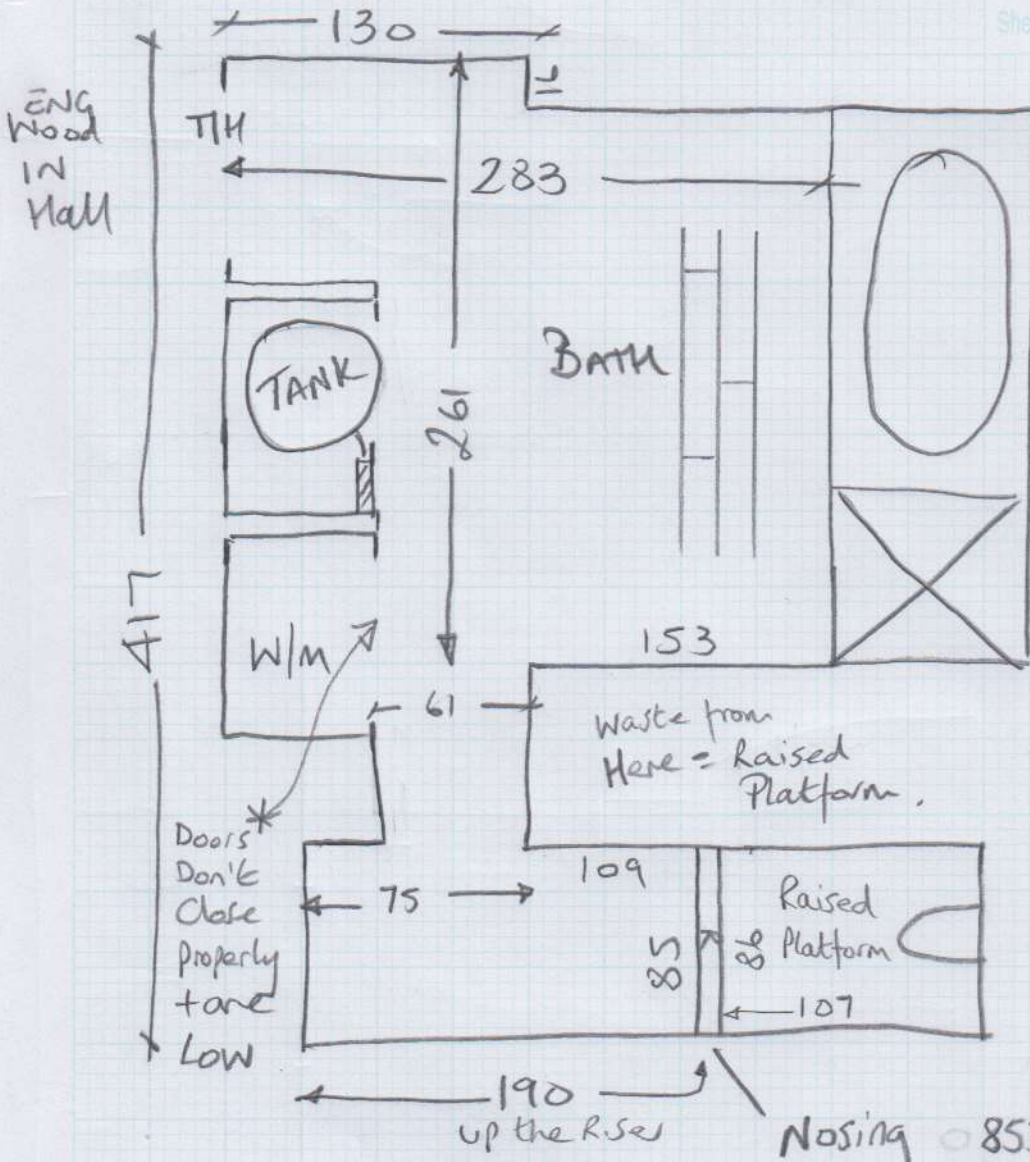 130
She
ENG
Wood
IN
Hall
T/H
16
283
BATH
TANK
261
417
W/M
61
153
Waste from
Here = Raised
Platform.
Doors
Don't
Close
Properly
+ are
Low
75
109
85
86
Raised
Platform
107
190
up the Riser
Nosing
85